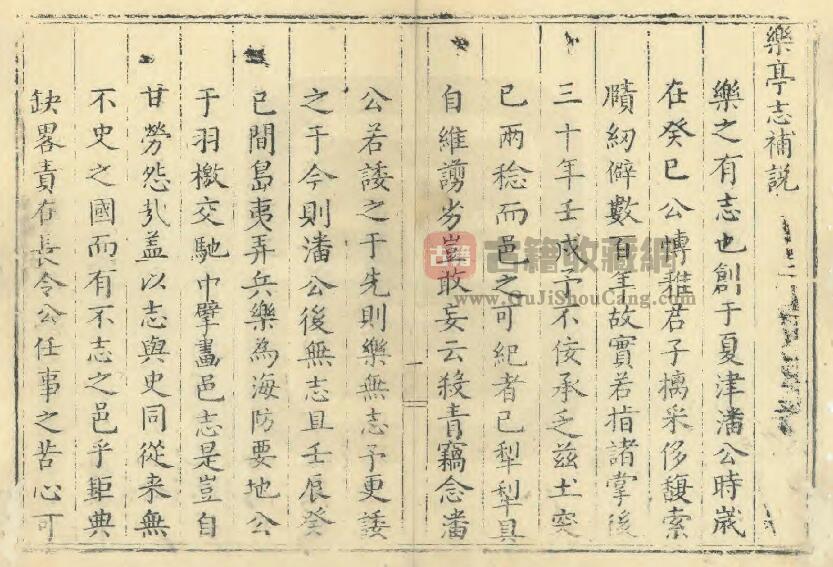 樂亭志補說
樂之有志也創于夏津潘公時歲
在癸巳公愽雅君子摛采侈馥索
隤紉僻數百年故實若指諸掌後
三十年壬戌予不佞承乏茲土突
已兩稔而邑之可紀者已犁犁具
自維謭劣豈敢妄云殺青竊念潘
公若諉之于先則樂無志予更諉
之于今則潘公後無志且壬辰癸
巳間島夷弄兵樂為海防要地公
于羽檄交馳中擘畵邑志是豈自
甘勞怨㢤盖以志與史同從來無
不史之國而有不志之邑乎鉅典
缺畧責在長令公任事之苦心可
一
古籍
古籍收藏網
www.GuJiShouCang.com